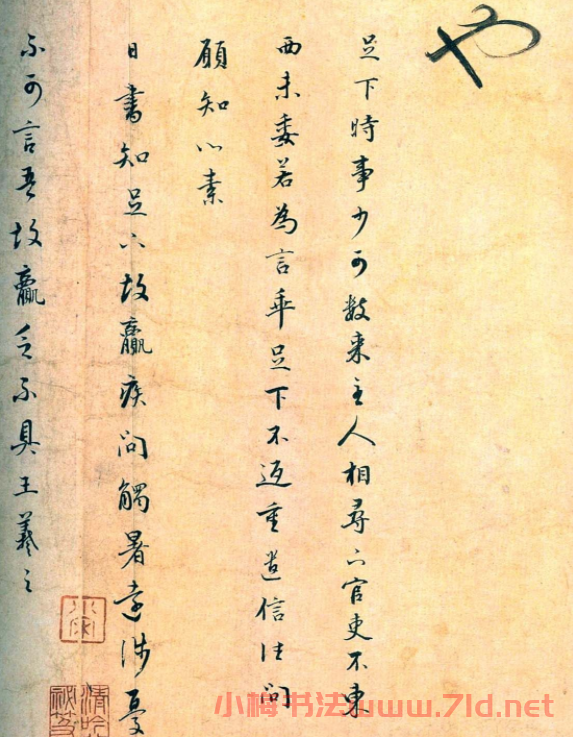 也
足下時事少可數来主人相尋下官吏不東
西未委若為言乖足下不返重遣信往問
願知心素
日書知足下故羸疾問觸暑遠涉憂
不可言吾故羸乏不具王羲之
小梅书法www.7ld.net